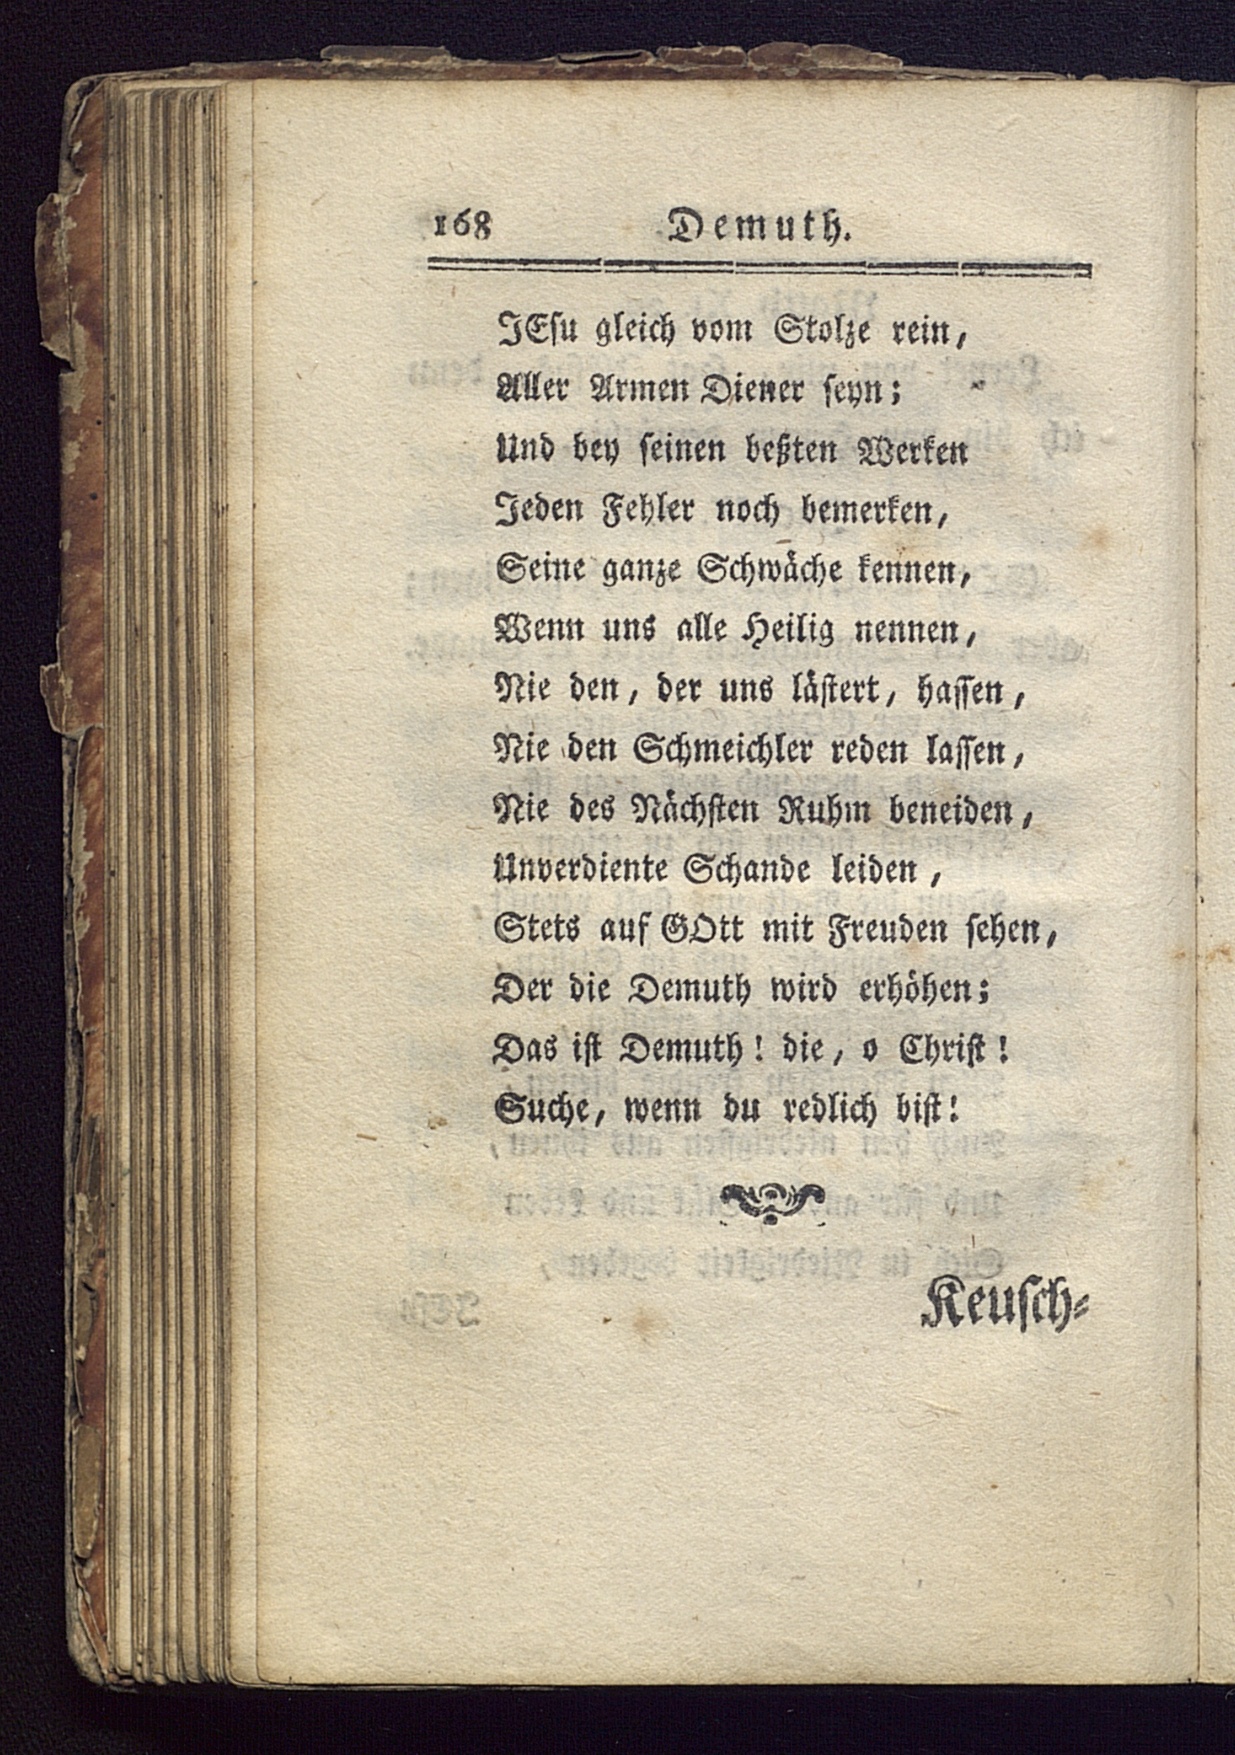 168 Demuth.
JEsu gleich vom Stolze rein,
Aller Armen Diener seyn;
Und bey seinen beßten Werken
Jeden Fehler noch bemerken,
Seine ganze Schwäche kennen,
Wenn uns alle Heilig nennen,
Nie den, der uns lästert, hassen,
Nie den Schmeichler reden lassen,
Nie des Nächsten Ruhm beneiden,
Unverdiente Schande leiden,
Stets auf GOtt mit Freuden sehen,
Der die Demuth wird erhöhen;
Das ist Demuth! die, o Christ!
Suche, wenn du redlich bist!
Keusch-